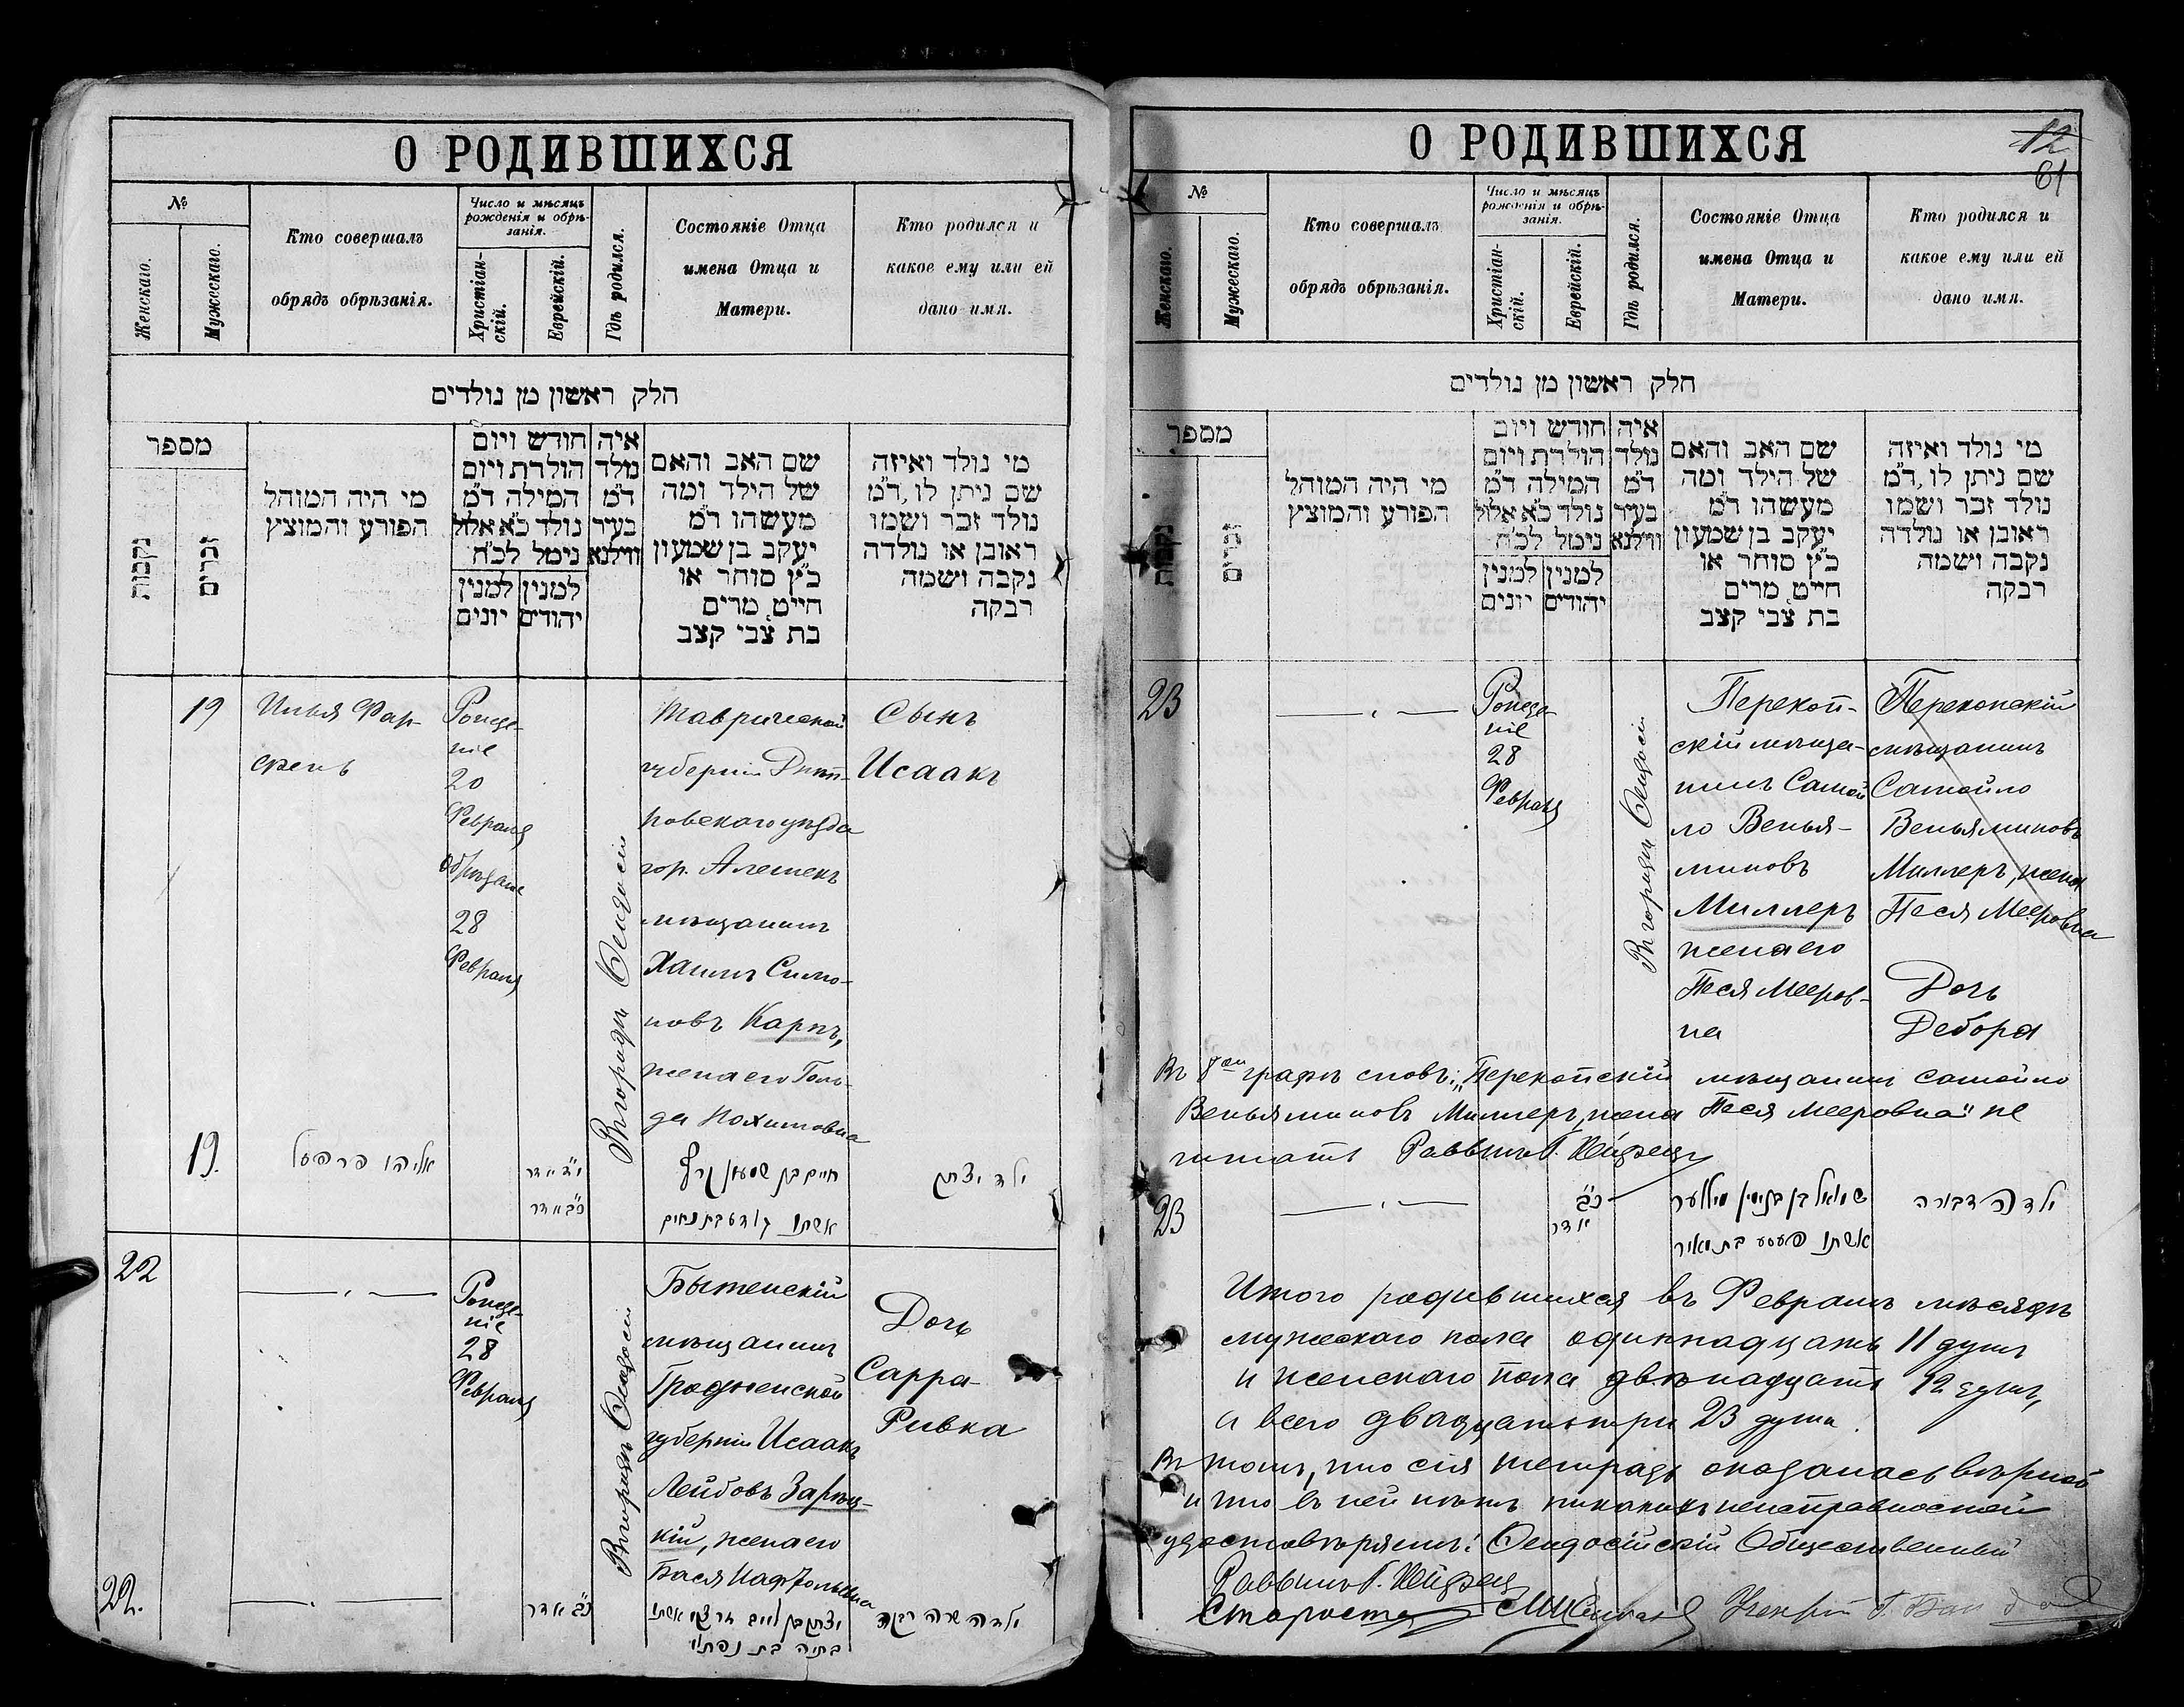 О РОДИВШИХСЯ
№
Женскаго.
Мужескаго.
Кто совершалъ
обрядъ обрѣзанія.
Число и мѣсяцъ
рожденія и обрѣ-
занія.
Христіан-
скій.
Еврейскій.
Гдѣ родился.
Состояніе Отца
имена Отца и
Матери.
Кто родился и
какое ему или ей
дано имя.
חלק ראשון מן נולדים
מספר
נקבות
זכרים
מי היה המוהל
הפורע והמוצץ
חודש ויום
הולדת ויום
המילה ד״מ
נולד כ״א אלול
נימל לכ״ח
למנין יהודים
למנין יונים
איה
נולד
ד״מ
בעיר
ווילנא
שם האב והאם
של הילד ומה
מעשהו ד״מ
יעקב בן שמעון
כ״ץ סוחר או
חייט, מרים
בת צבי קצב
מי נולד ואיזה
שם ניתן לו, ד״מ
נולד זכר ושמו
ראובן או נולדה
נקבה ושמה
רבקה
19
Илья Фар-
Рожде-
ніе
20
Февраля
Обрѣзаніе
28
Февраля
Въ городѣ Ѳеодосіи
Таврической
губерніи Днѣп-
ровскаго уѣзда
гор. Алешекъ
мѣщанинъ
Хаимъ Симо-
новъ Карпъ,
жена его Голь-
да Нохимовна
Сынъ
Исаакъ
19.
י״ד אדר
כ״ב אדר
חיים בן שמעון קרפ
אשתו גולדע בת נחום
ילד יצחק
22
Рожде-
ніе
28
Февраля
Въ городѣ Ѳеодосіи
Бытенскій
мѣщанинъ
Гродненской
губерніи Исаакъ
Лейбовъ Зарѣц-
кій, жена его
Бася Нафтольевна
Дочь
Сарра-
Ривка
22.
כ״ב אדר
בתיה בת נפתלי
ילדה שרה רבקה
О РОДИВШИХСЯ
12
61
№
Женскаго.
Мужескаго.
Кто совершалъ
обрядъ обрѣзанія.
Число и мѣсяцъ
рожденія и обрѣ-
занія.
Христіан-
скій.
Еврейскій.
Гдѣ родился.
Состояніе Отца
имена Отца и
Матери.
Кто родился и
какое ему или ей
дано имя.
חלק ראשון מן נולדים
מספר
נקבות
זכרים
מי היה המוהל
הפורע והמוצץ
חודש ויום
הולדת ויום
המילה ד״מ
נולד כ״א אלול
נימל לכ״ח
למנין יהודים
למנין יונים
איה
נולד
ד״מ
בעיר
ווילנא
שם האב והאם
של הילד ומה
מעשהו ד״מ
יעקב בן שמעון
כ״ץ סוחר או
חייט, מרים
בת צבי קצב
מי נולד ואיזה
שם ניתן לו, ד״מ
נולד זכר ושמו
ראובן או נולדה
נקבה ושמה
רבקה
23
Рожде-
ніе
28
Февраля
Въ городѣ Ѳеодосіи
Перекоп-
скій мѣща-
нинъ Самой
ло Венья-
миновъ
Миллеръ
жена его
Песя Мееров-
на
Перекопскій
мѣщанинъ
Самойло
Веньяминовъ
Миллеръ, жена
Песя Мееровна
Дочь
Дебора
Въ 8ой графѣ словъ: „Перекопскій мѣщанинъ Самойло
Веньяминовъ Миллеръ, жена Песя Мееровна" не
читать Раввинъ Г.
23
כ״ב
אדר
שמואל בן בנימין מיללער
אשתו פעסע בת מאיר
ילדה דבורה
Итого родившихся въ Февралѣ мѣсяцѣ
мужескаго пола одиннадцать 11 душъ
и женскаго пола двѣнадцать 12 душъ,
а всего двадцать три 23 души.
Въ томъ, что сія тетрадь оказалась вѣрной
и что въ ней нѣтъ никакихъ неисправностей
удостовѣряемъ: Ѳеодосійскій Общественный
Раввинъ Г.
Староста